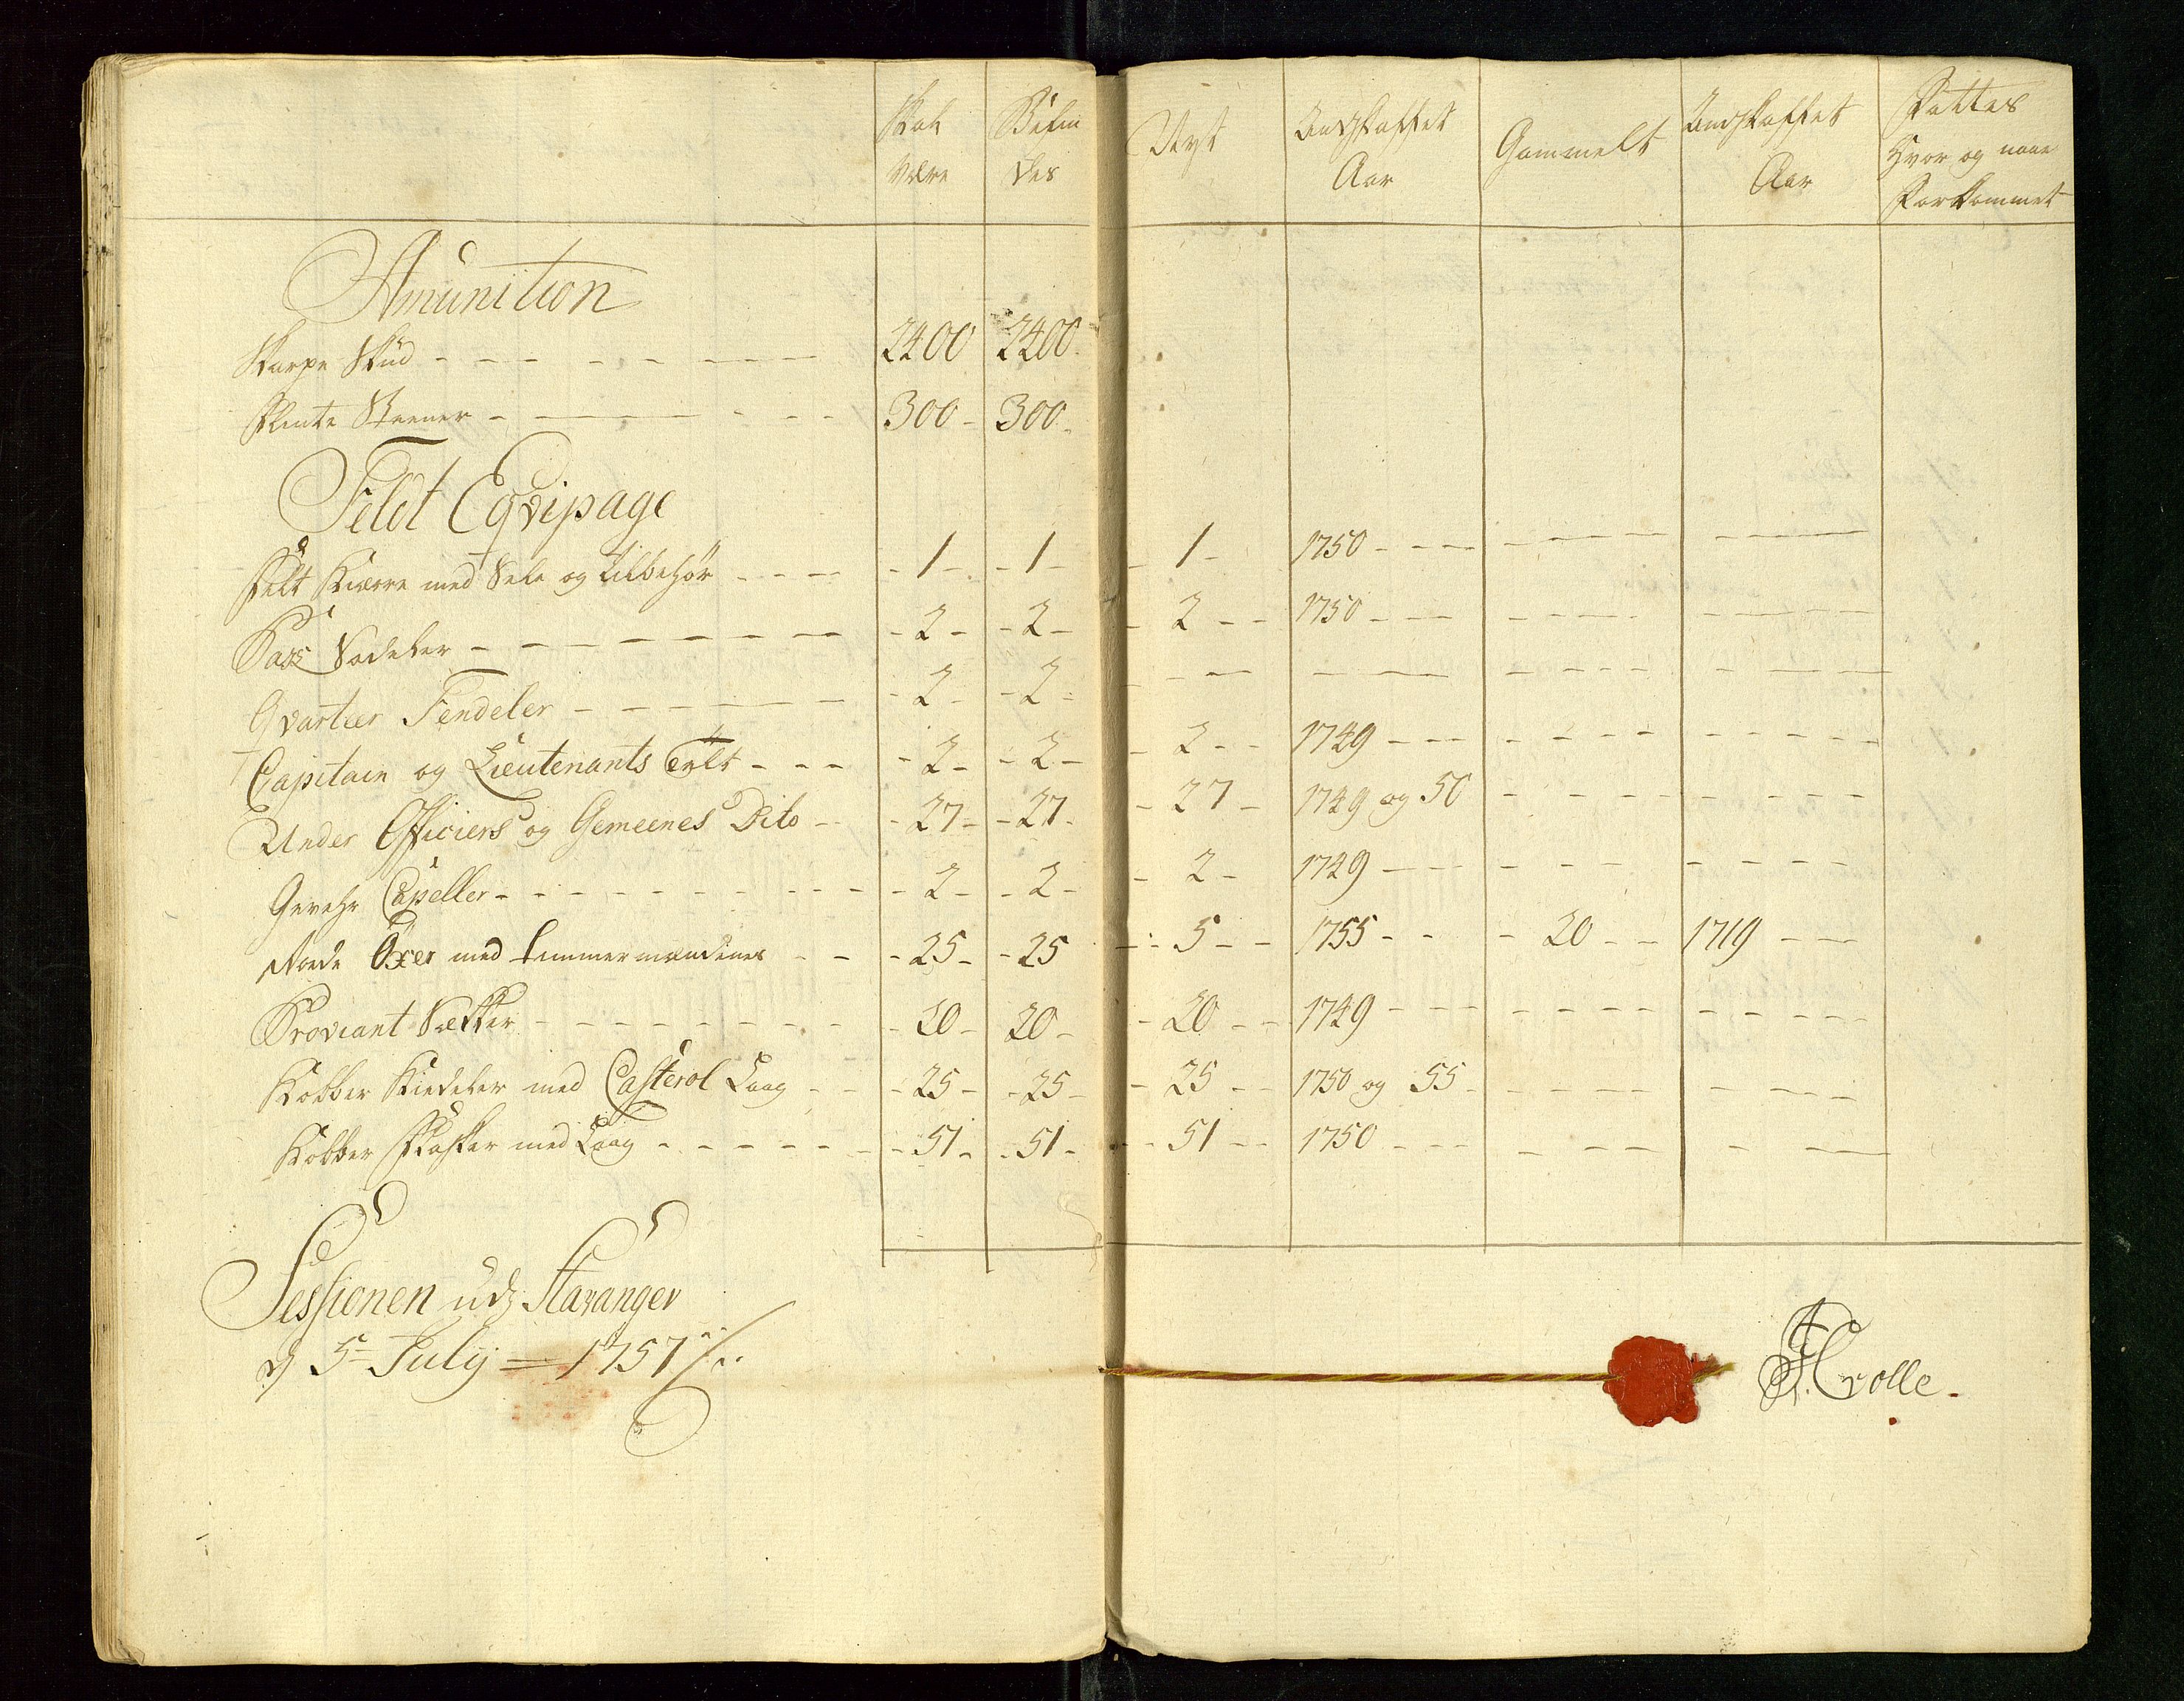 Skal være | Befindes | Nyt | Andskaffet Aar | Gammelt | Andskaffet Aar | Fattes Hvor og naar Forkommet
Amunition
Skarpe Skud - 2400 | 2400
Flinte Steener - 300 | 300
Feldt Eqvipage
Felt Kierre med Sele og tilbehör - 1 | 1 | 1 | 1750
Pass Sadeler - 2 | 2 | 2 | 1750
Qvarteer Fendeler - 2 | 2
Capitain og Lieutenants Telt - 2 | 2 | 2 | 1749
Under Officiers og Gemeenes Dito - 27 | 27 | 27 | 1749 og 50
Gevehr Capeller - 2 | 2 | 2 | 1749
Öxer med timmermændenes - 25 | 25 | 5 | 1755 | 20 | 1719
Proviant Sækker - 20 | 20 | 20 | 1749
Kobber Kiedeler med Casterol Laag - 25 | 25 | 25 | 1750 og 55
Kobber Flasker med Laag - 51 | 51 | 51 | 1750
Sessionen udj Stavanger
d 5te July = 1757
Colle